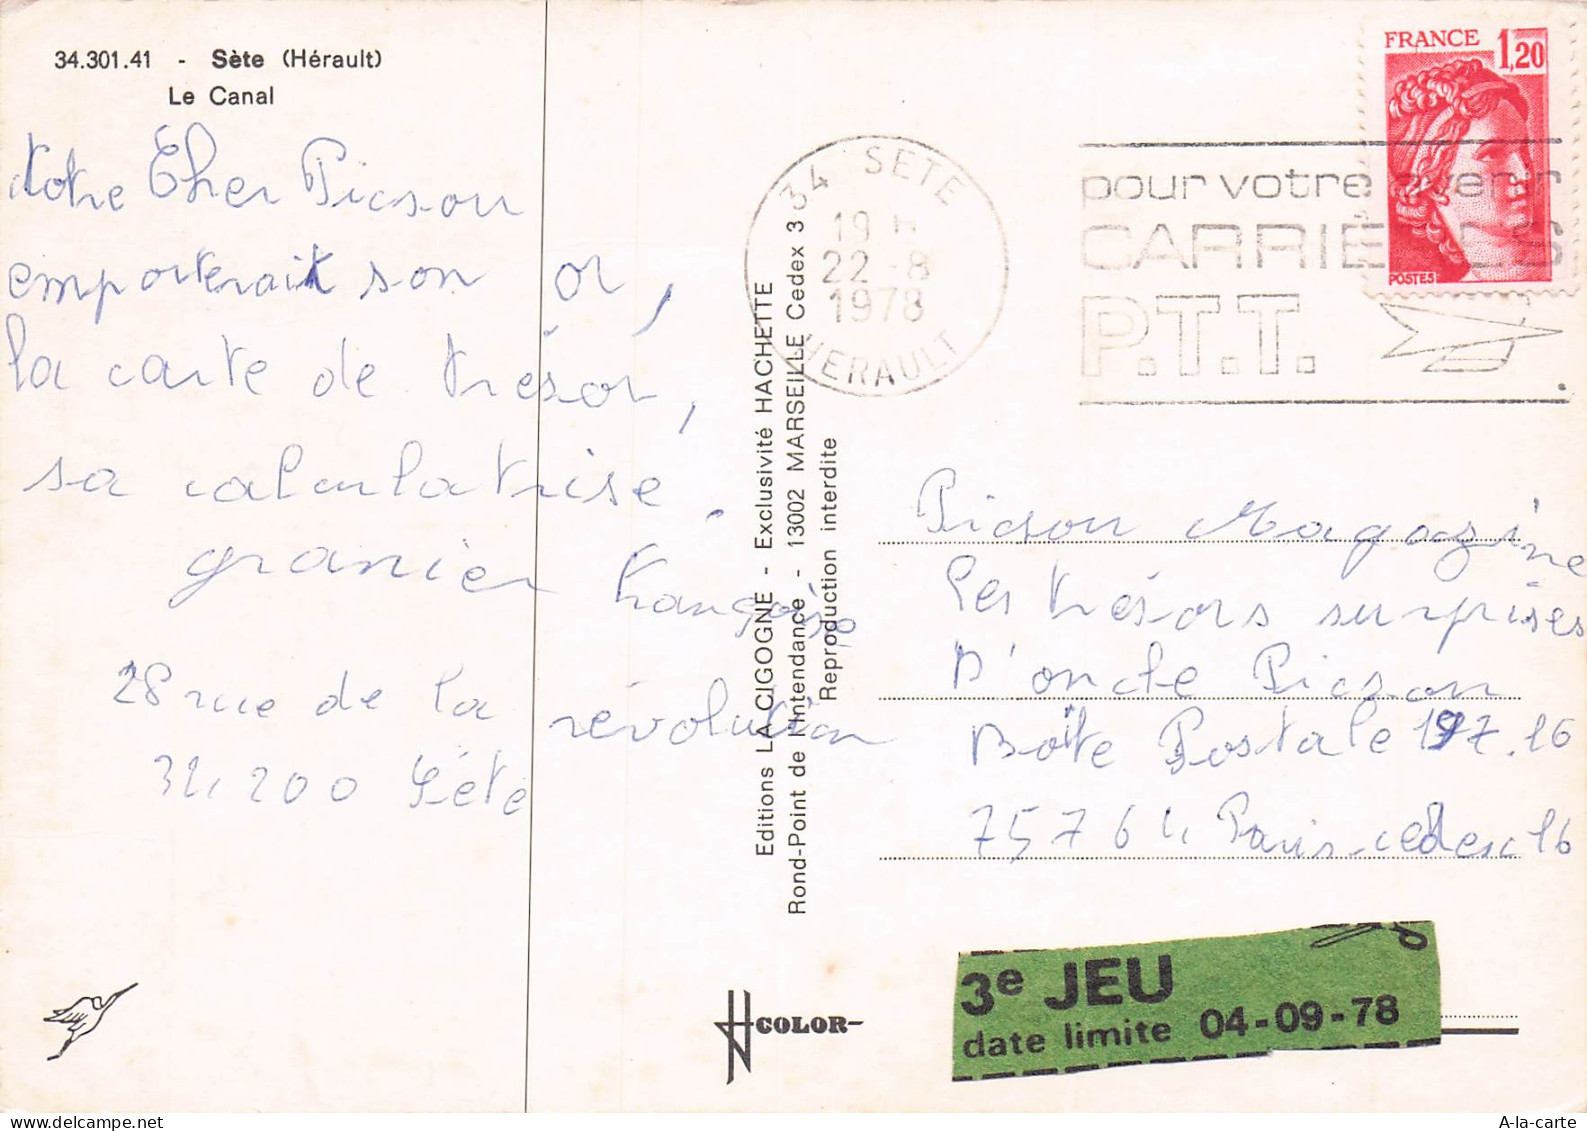 34.301.41 - Sète (Hérault)
Le Canal
Notre Cher Picsou
emporterait son or,
la carte de trésor,
sa calculatrise.
granier françoise
28 rue de la révolution
34200 Sète
Editions LA CIGOGNE - Exclusivité HACHETTE
Rond-Point de l'Intendance - 13002 MARSEILLE Cedex 3
Reproduction interdite
COLOR
34 SETE
19 H
22-8
1978
HERAULT
pour votre avenir
CARRIERES
P.T.T.
FRANCE 1,20
POSTES
Picsou Magazine
Les trésors surprises
D'oncle Picsou
Boîte Postale 197.16
75764 Paris cedex 16
3e JEU
date limite 04-09-78
A-la-carte